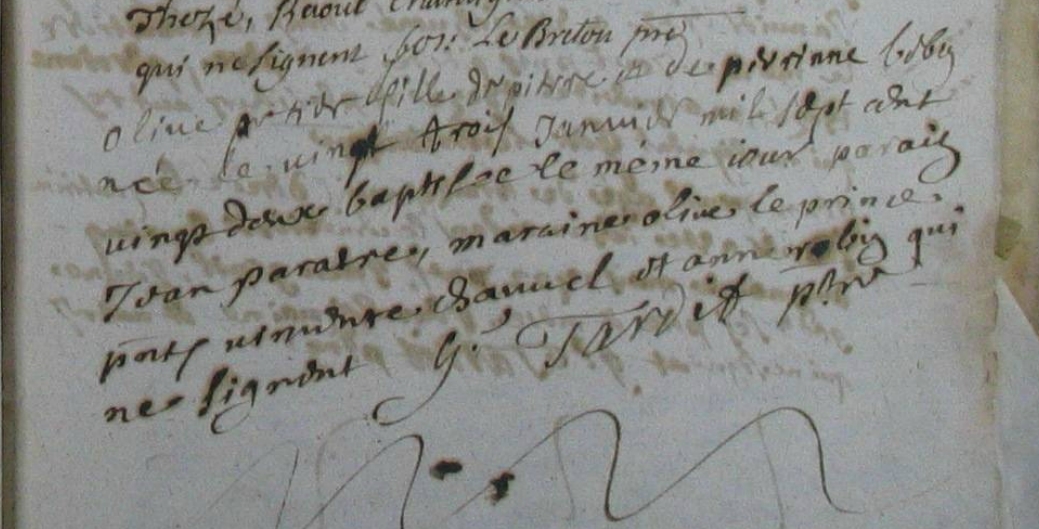 Theze, Raoul
qui ne signent Le Breton
Olive fille de pierre et de perrinne
née le vingt trois Janvier mil sept cent
vingt deux baptisee le méme iour parain
Jean paratre, maraine olive le prince
pnts et anne robin qui
ne signent G. Tardif ptre